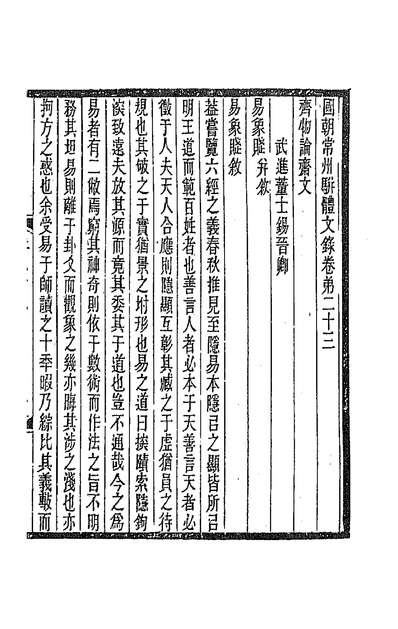 國朝常州駢體文錄卷弟二十三
齊物論齋文
武進董士錫晉卿
易象賦并敘
易象賦敘
葢嘗覽六經之義春秋推見至隱易本隱㠯之顯皆所㠯
明王道而範百姓者也善言人者必本于天善言天者必
徵于人夫天人合應則隱顯互彰其臧之于虛猶員之待
規也其破之于實猶景之坿形也易之道曰探賾索隱鉤
㴱致遠夫放其源而竟其委其于道也豈不通哉今之爲
易者有二敝焉窮其神奇則依于數術而作法之旨不明
務其坦易則離于卦爻而觀象之幾亦晦其涉之淺也亦
拘方之惑也余受易于師讀之十年暇乃綜比其義𣤶而